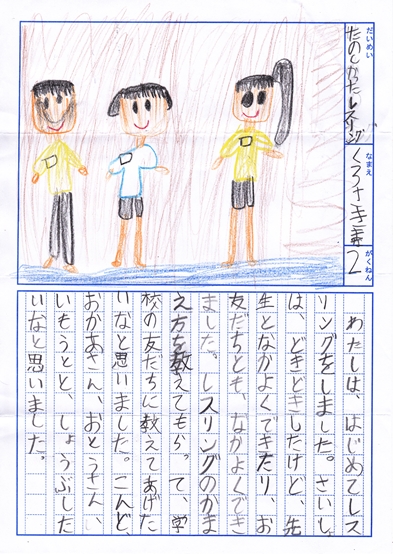 だいめい
たのしかったレスリング
なまえ
がくねん
2
わたしは、はじめてレス
リングをしました。さいしょ
は、どきどきしたけど、先
生となかよくできたり、お
友だちとも、なかよくでき
ました。レスリングのかま
え方を教えてもらって、学
校の友だちに教えてあげた
いなと思いました。こんど、
おかあさん、おとうさん、
いもうとと、しょうぶした
いなと思いました。